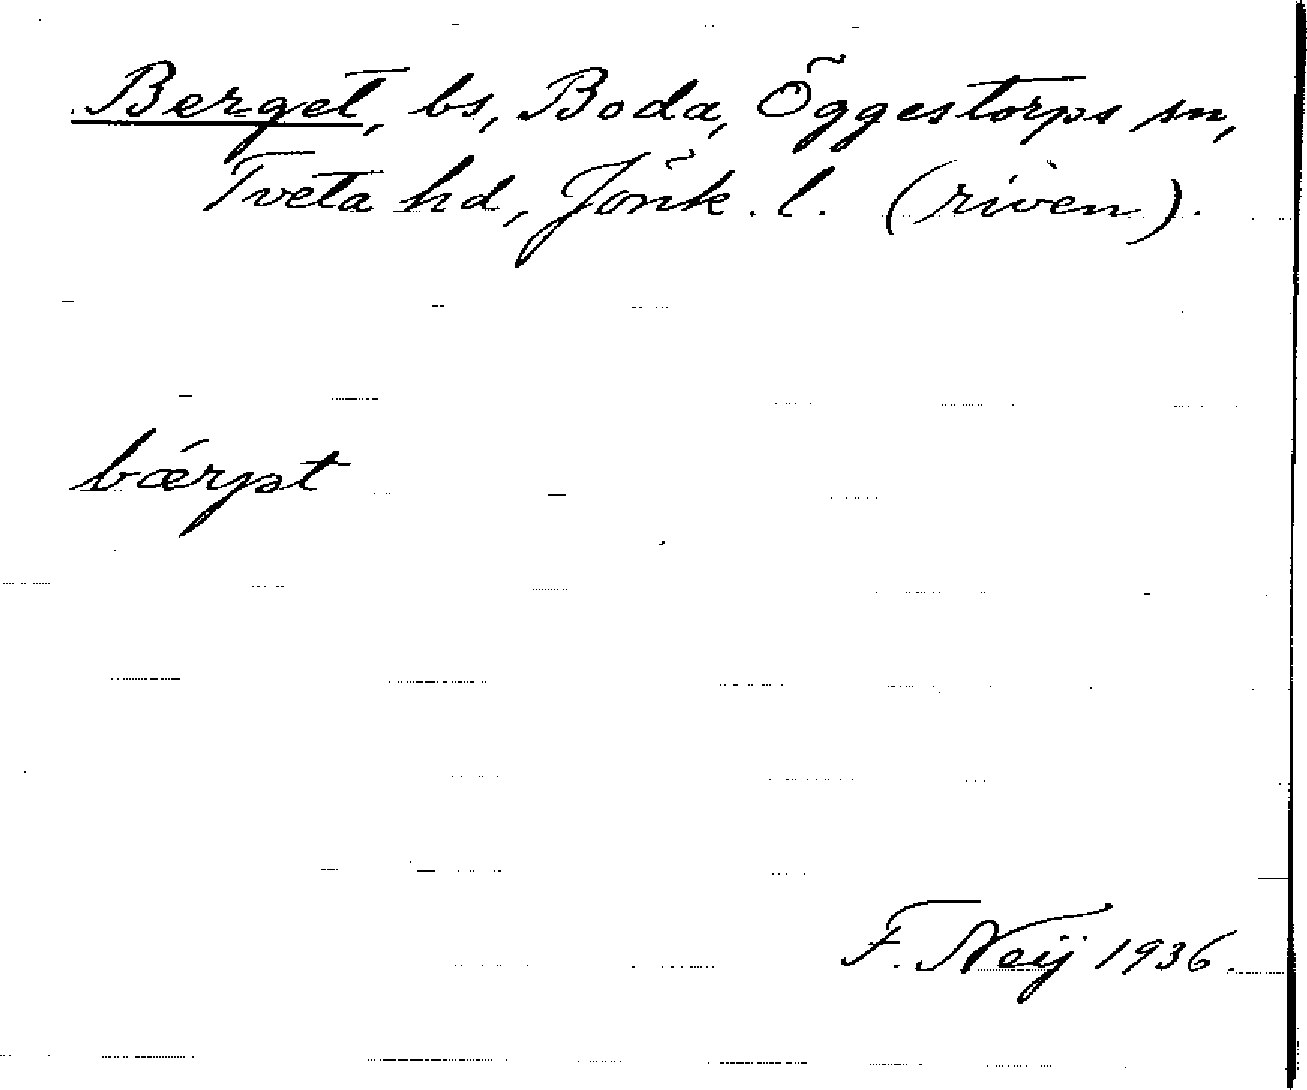 Berget, bs, Boda, Öggestorps sn,
Tveta hd, Jönk. l. (riven).
bǽrjət
F. Neij 1936.